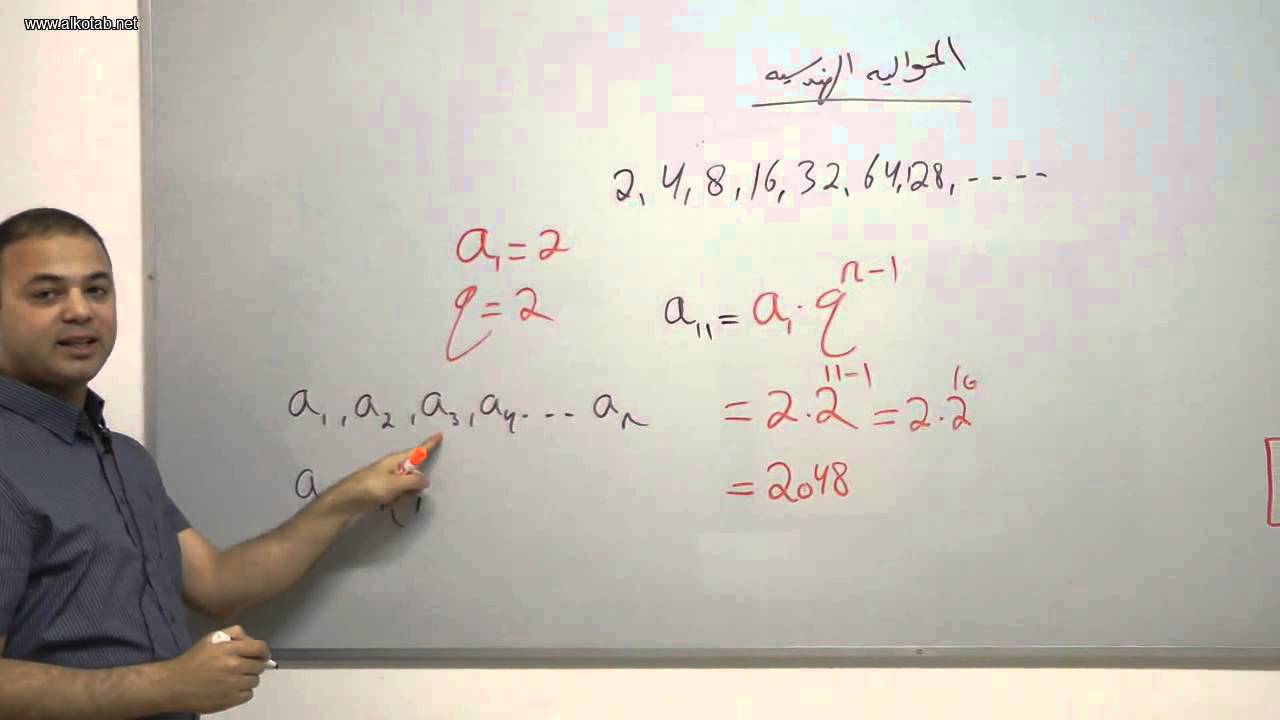 www.alkotab.net
المتواليه الهندسيه
2, 4, 8, 16, 32, 64, 128, ----
a₁ = 2
q = 2
a₁₁ = a₁ · qⁿ⁻¹
= 2 · 2¹¹⁻¹ = 2 · 2¹⁰
= 2048
a₁, a₂, a₃, a₄ ... aₙ
a